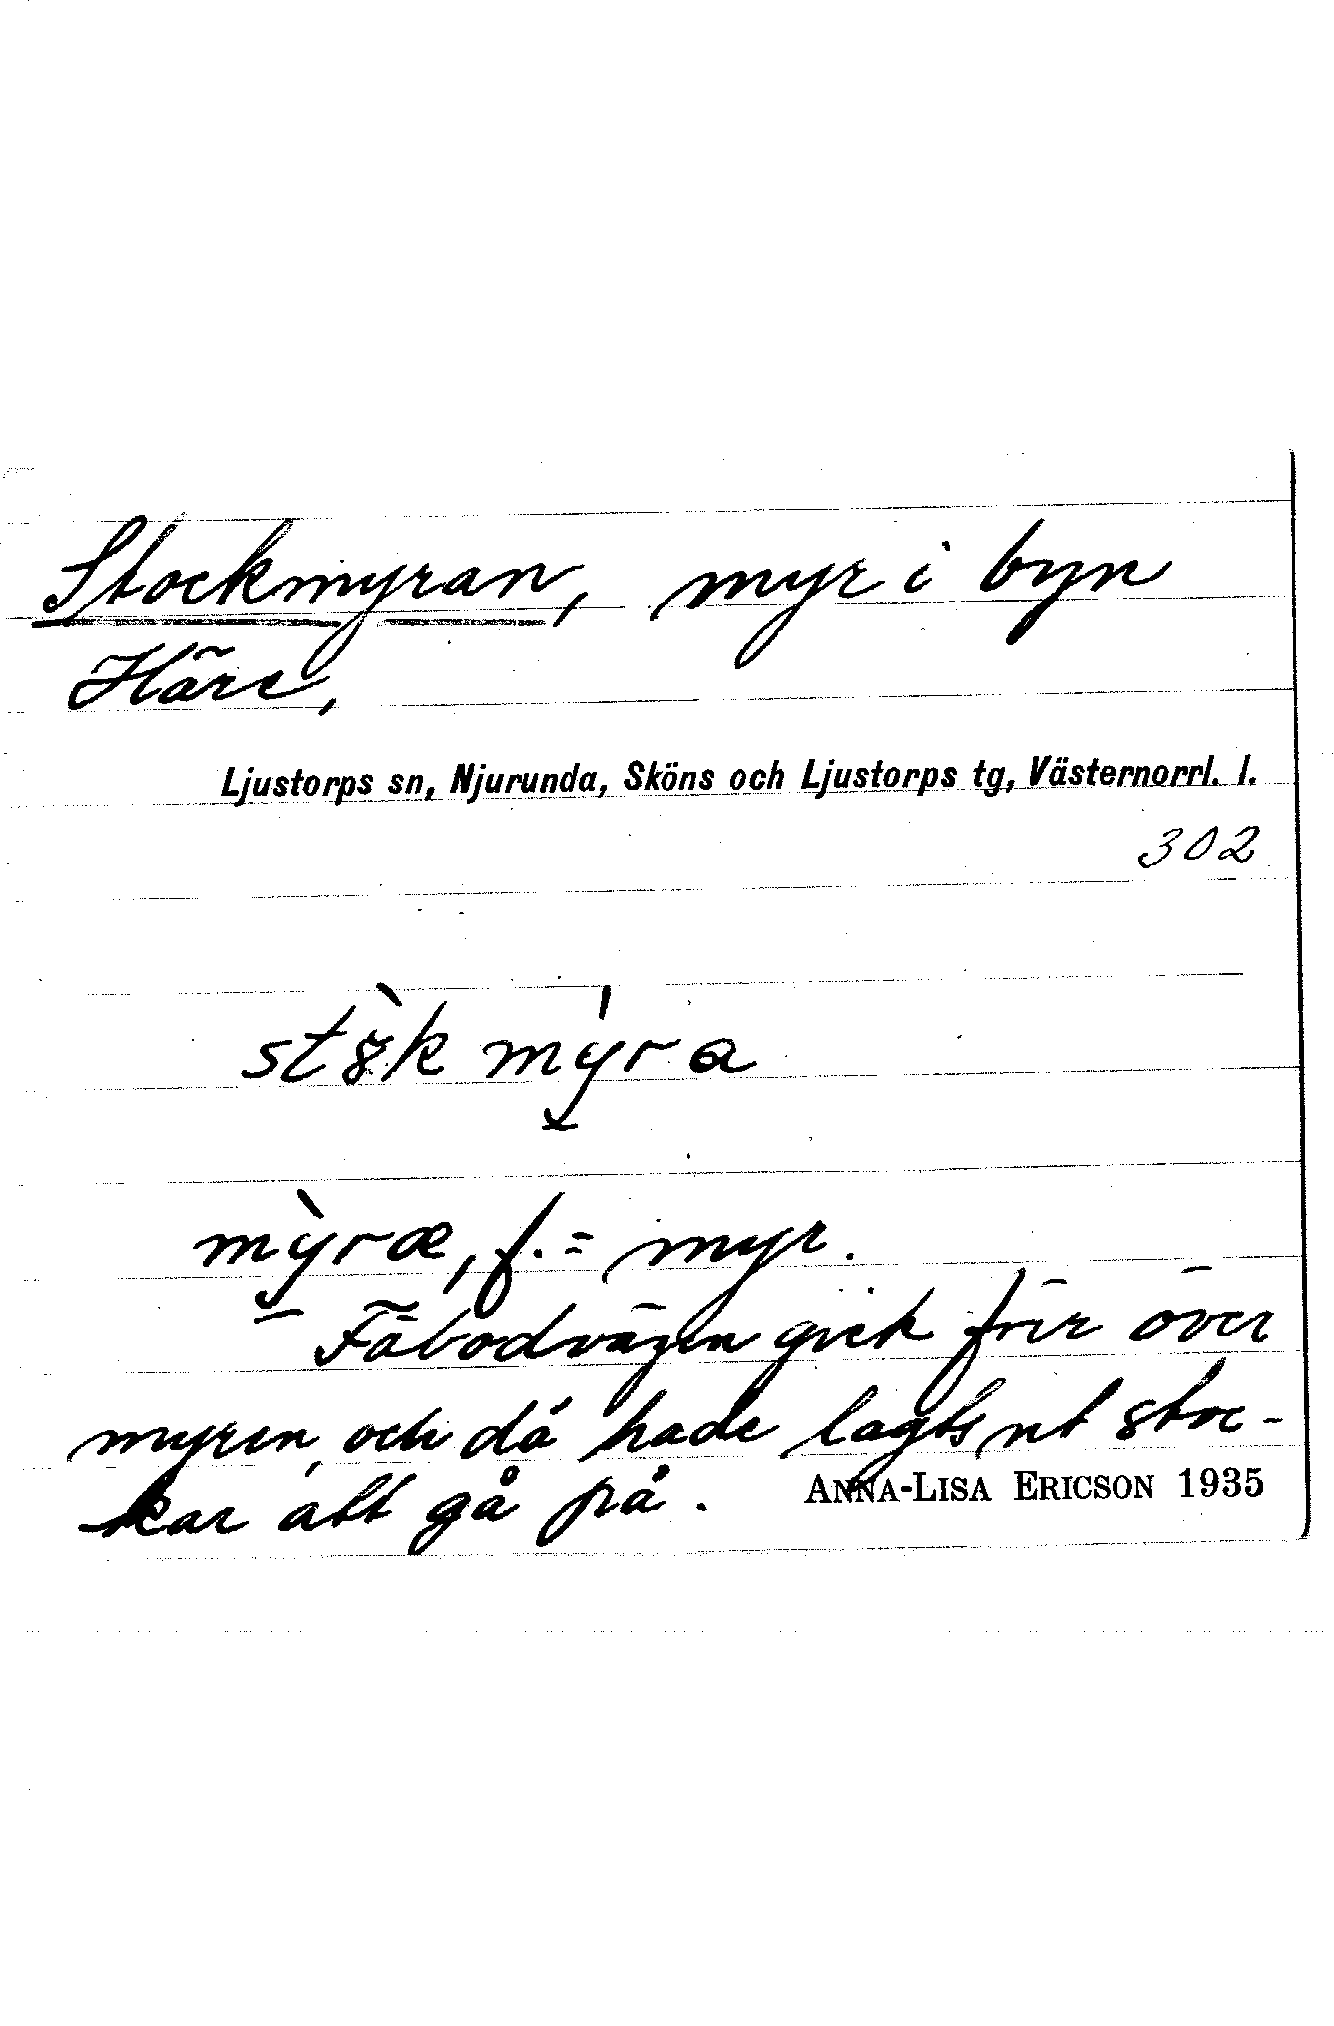 Stockmyran, myr i byn
Häre,
Ljustorps sn, Njurunda, Sköns och Ljustorps tg, Västernorrl. l.
302
myræ, f. = myr.
Fäbodvägen gick förr över
myren, och då hade lagts ut stoc-
kar att gå på.
ANNA-LISA ERICSON 1935